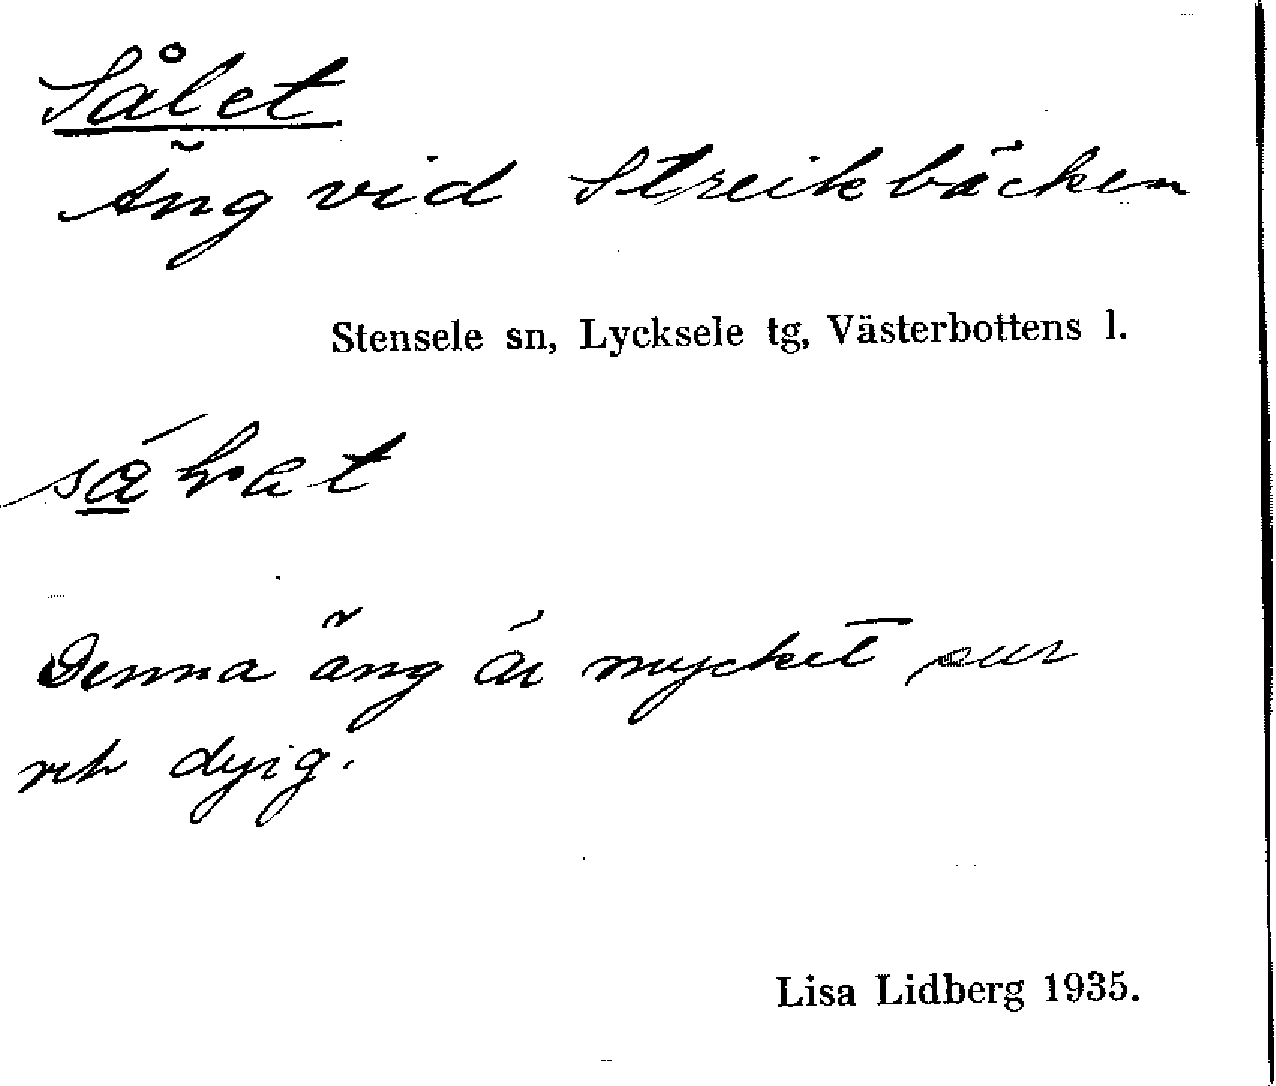 Sålet
Äng vid Streikbäcken
Stensele sn, Lycksele tg, Västerbottens l.
Denna äng är mycket sur
och dyig.
Lisa Lidberg 1935.